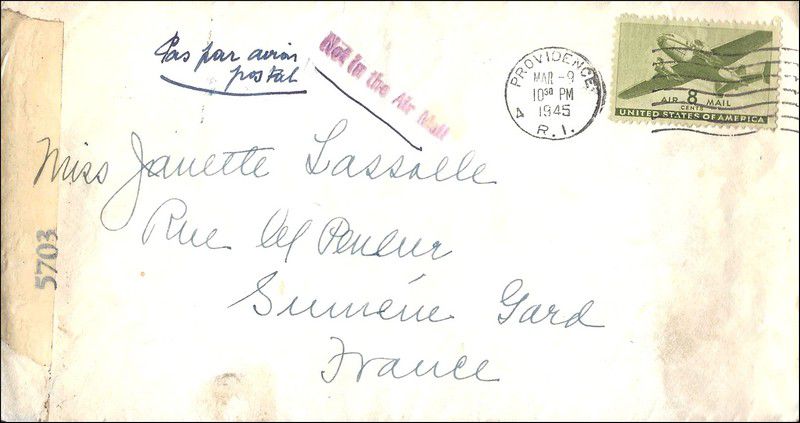 Pas par avion
postal
Not in the Air Mail
PROVIDENCE
MAR -9
1030 PM
1945
4 R. I.
AIR 8 MAIL
CENTS
UNITED STATES OF AMERICA
Miss Janette Lassalle
Rue
Sumène Gard
France
5703